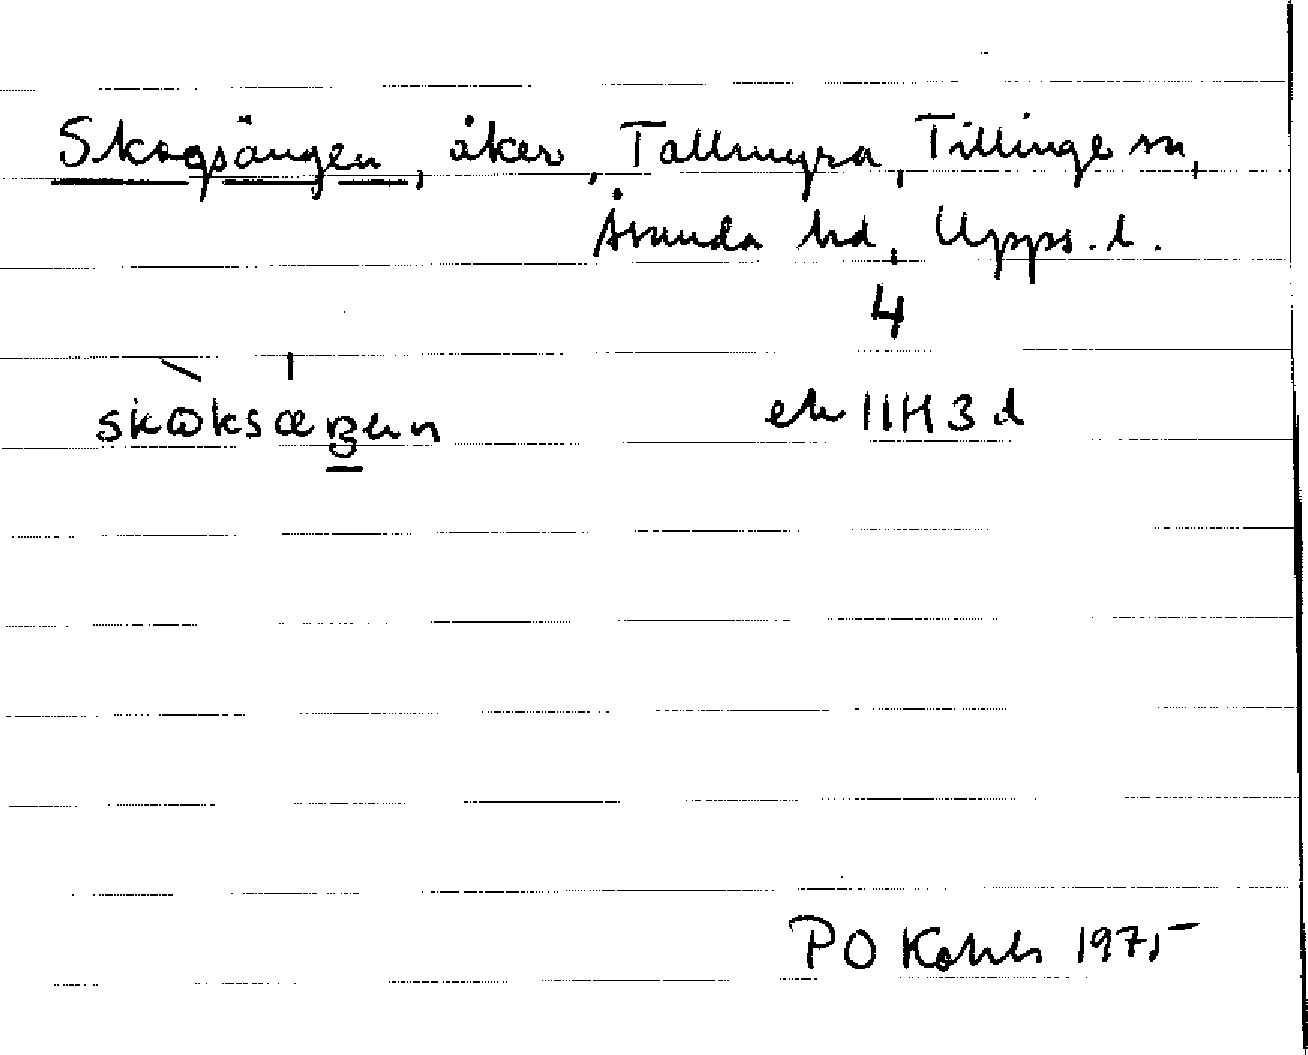 Skogsängen, åker, Tallmyra, Tillinge sn,
Åsunda hd, Upps. l.
4
ek 11H 3d
PO Kohls 1975